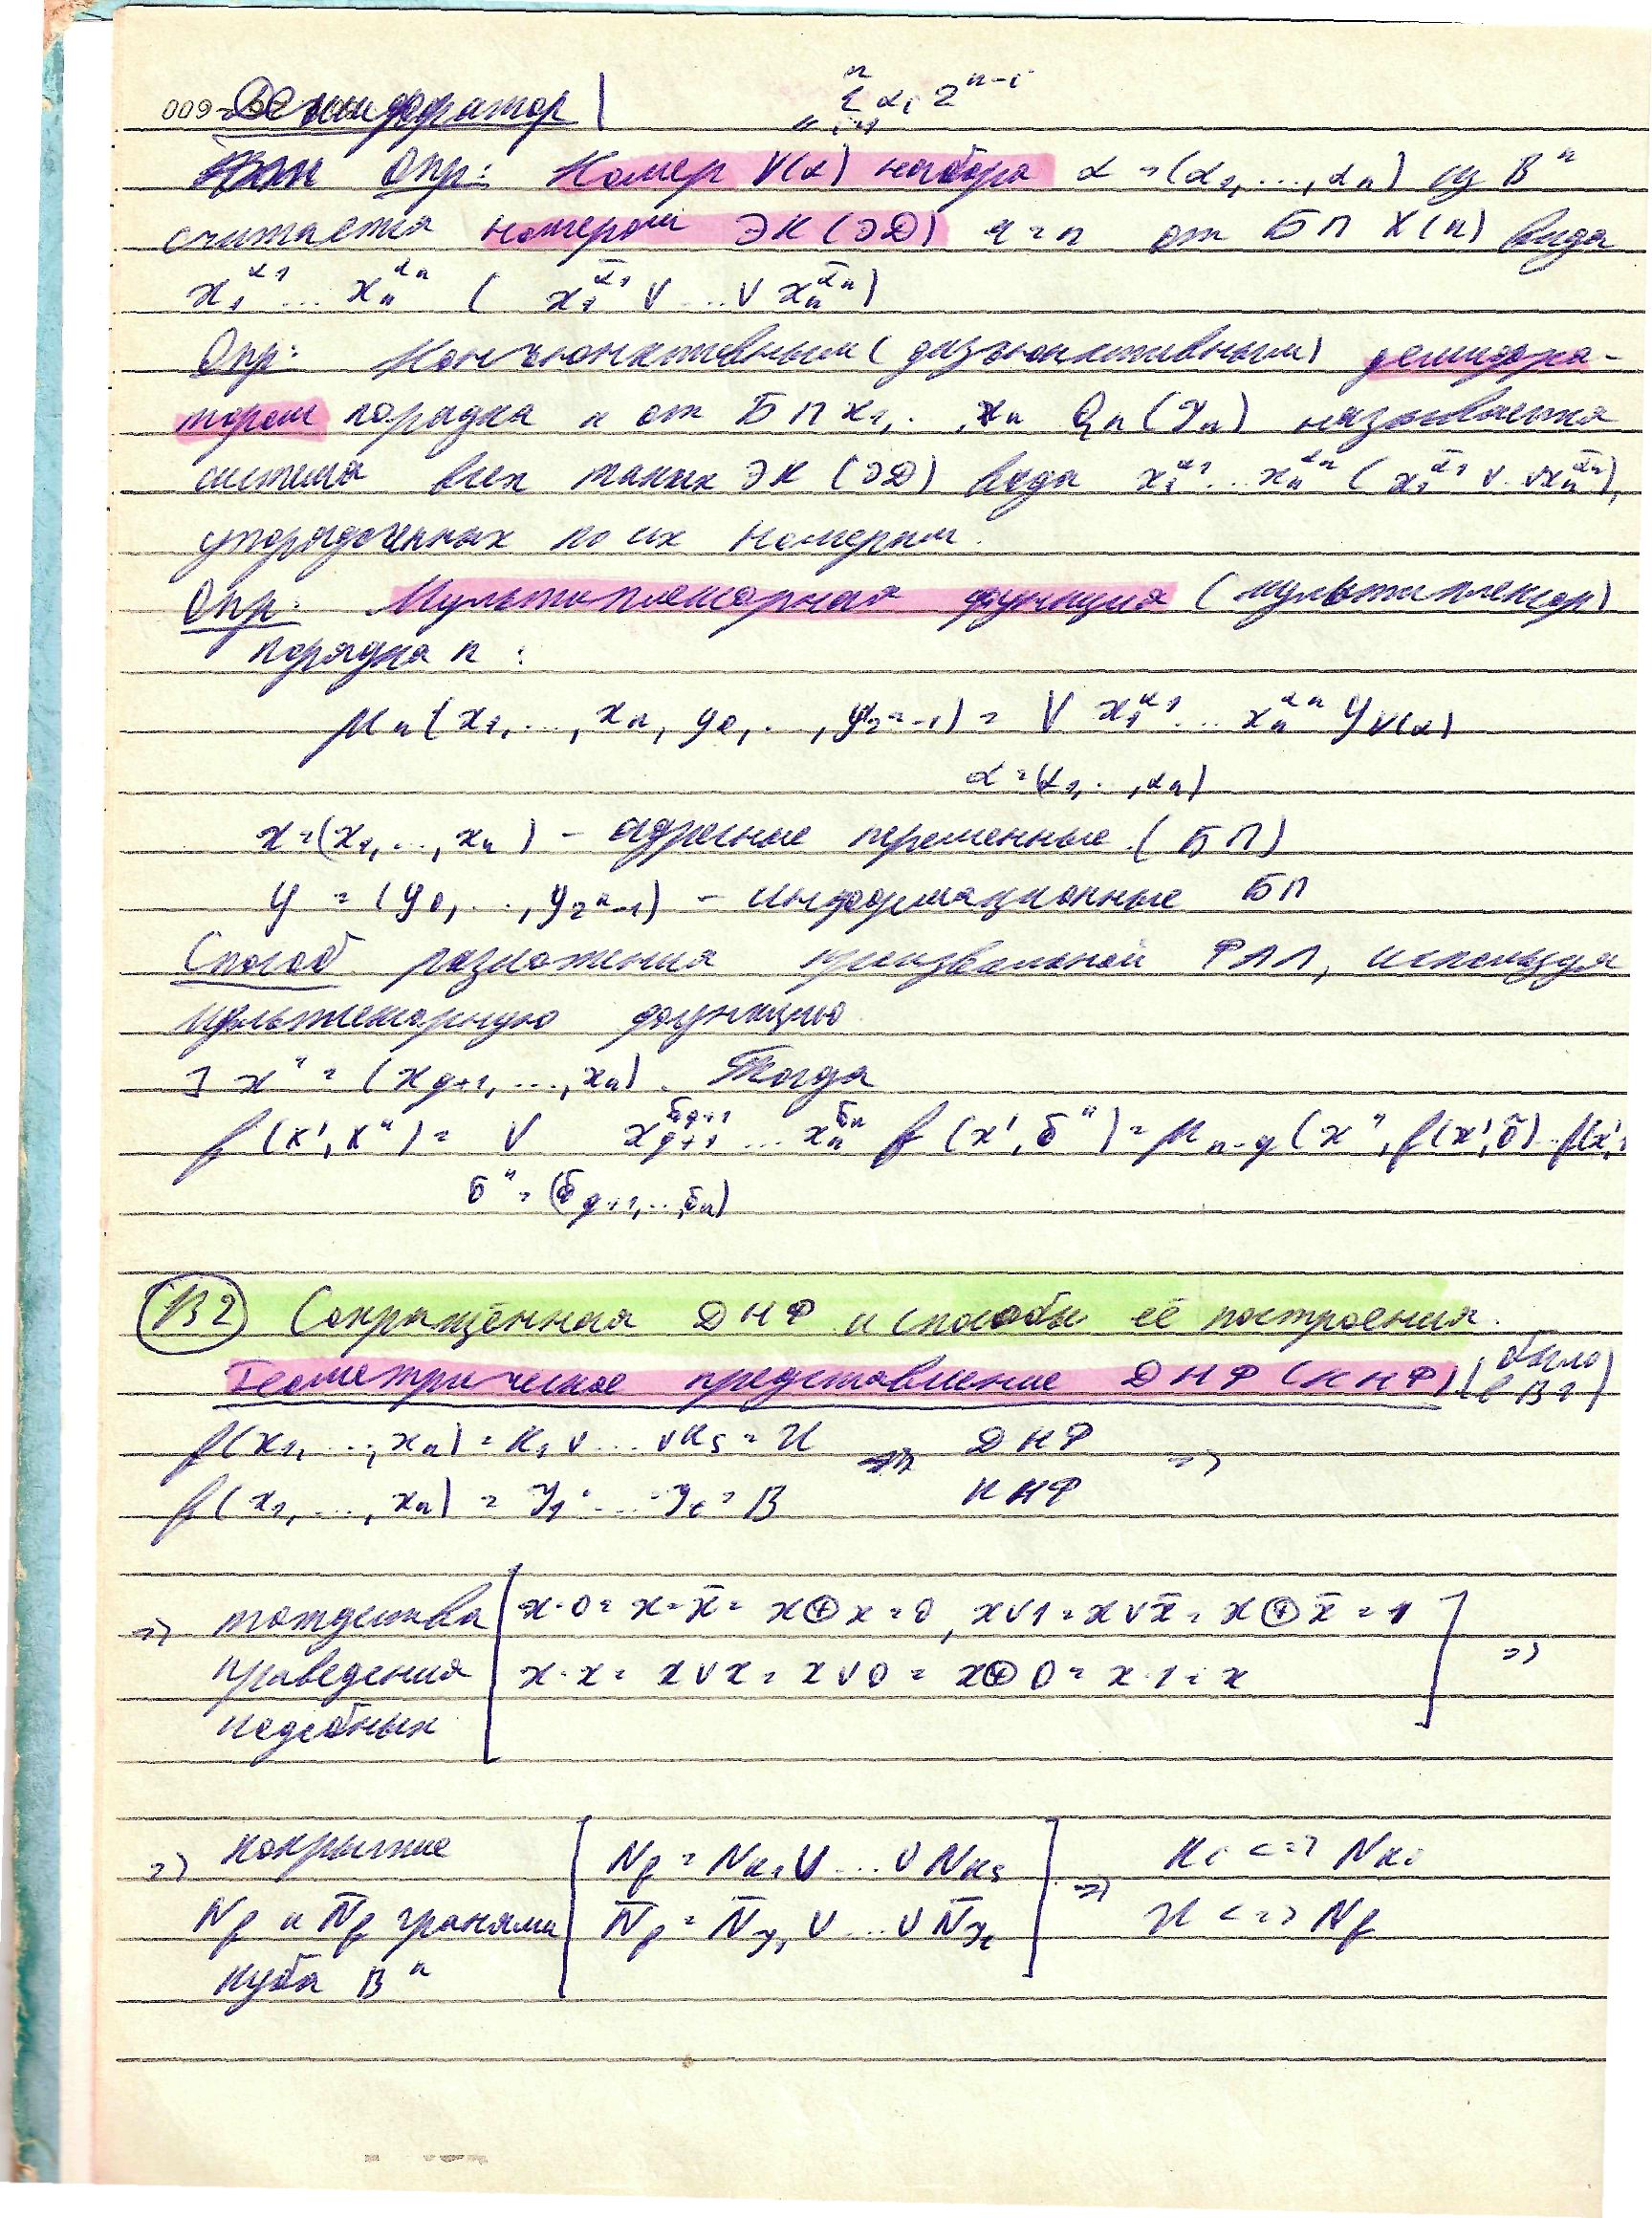 Дешифратор
n
Σ αᵢ 2ⁿ⁻ⁱ
" i=1
Опр: Номер ν(α) набора α = (α₁, ..., αₙ) из Bⁿ
считается номером ЭК (ЭД) r = n от БП X(n) вида
x₁^α₁ ... xₙ^αₙ ( x₁^ᾱ₁ ∨ ... ∨ xₙ^ᾱₙ )
Опр: Конъюнктивным (дизъюнктивным) дешифра-
тором порядка n от БП x₁, ..., xₙ Qₙ (Jₙ) называется
система всех таких ЭК (ЭД) вида x₁^α₁ ... xₙ^αₙ ( x₁^ᾱ₁ ∨ .. ∨ xₙ^ᾱₙ ),
упорядоченных по их номерам.
Опр: Мультиплексорная функция (мультиплексор)
порядка n :
μₙ(x₁, ..., xₙ, y₀, ..., y_{2ⁿ-1}) = ∨ x₁^α₁ ... xₙ^αₙ y_ν(α)
α = (α₁, ..., αₙ)
x = (x₁, ..., xₙ) - адресные переменные (БП)
y = (y₀, ..., y_{2ⁿ-1}) - информационные БП
Способ разложения произвольной ФАЛ, используя
мультиплексорную функцию
] x'' = (x_{q+1}, ..., xₙ). Тогда
f(x', x'') = ∨ x_{q+1}^σ_{q+1} ... xₙ^σₙ f(x', σ'') = μ_{n-q}(x'', f(x', 0̃) .. f(x', 1
σ'' = (σ_{q+1}, ..., σₙ)
В2 Сокращённая ДНФ и способы её построения.
Геометрическое представление ДНФ (КНФ) (было в В1)
f(x₁, ..., xₙ) = K₁ ∨ ... ∨ K_s = U ⇒ ДНФ ⇒
f(x₁, ..., xₙ) = J₁ · ... · J_t = B КНФ
⇒ тождества [ x·0 = x·x̄ = x⊕x = 0, x∨1 = x∨x̄ = x⊕x̄ = 1 ]
приведения [ x·x = x∨x = x∨0 = x⊕0 = x·1 = x ] ⇒
подобных
⇒ покрытие [ N_f = N_K₁ ∪ ... ∪ N_K_s ] ⇒ Kᵢ <=> N_Kᵢ
N_f и N̄_f гранями [ N̄_f = N̄_J₁ ∪ ... ∪ N̄_J_t ] U <=> N_f
куба Bⁿ